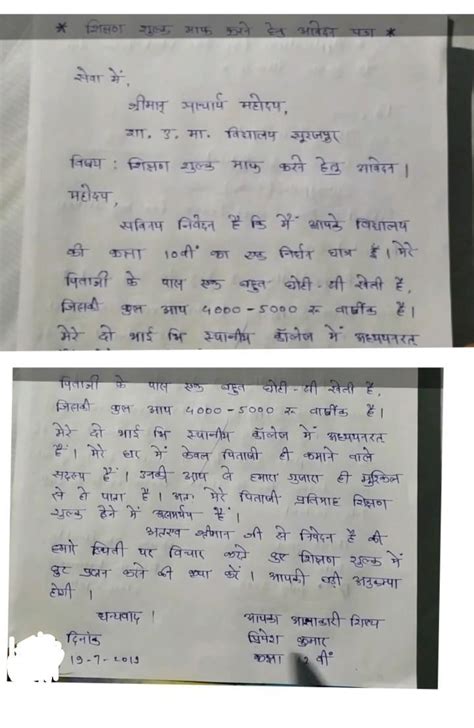 * शिक्षण शुल्क माफ करने हेतु आवेदन पत्र *
सेवा में,
श्रीमान् आचार्य महोदय,
शा. उ. मा. विद्यालय सूरजपुर
विषय : शिक्षण शुल्क माफ करने हेतु आवेदन ।
महोदय,
सविनय निवेदन है कि मैं आपके विद्यालय
की कक्षा 10वीं का एक निर्धन छात्र हूँ । मेरे
पिताजी के पास एक बहुत छोटी-सी खेती है,
जिसकी कुल आय 4000-5000 रु वार्षिक है ।
मेरे दो भाई भि स्थानीय कॉलेज में अध्ययनरत
पिताजी के पास एक बहुत छोटी-सी खेती है,
जिसकी कुल आय 4000-5000 रु वार्षिक है ।
मेरे दो भाई भि स्थानीय कॉलेज में अध्ययनरत
हैं । मेरे घर में केवल पिताजी ही कमाने वाले
सदस्य हैं । उनकी आय से हमारा गुजारा ही मुश्किल
से हो पाता है । अतः मेरे पिताजी प्रतिमाह शिक्षण
शुल्क देने में असमर्थ हैं ।
अतएव श्रीमान जी से निवेदन है की
हमारे स्थिती पर विचार करते हुए शिक्षण शुल्क में
छुट प्रदान करने की कृपा करें । आपकी बड़ी अनुकम्पा
होगी ।
धन्यवाद ।
आपका आज्ञाकारी शिष्य
दिनांक
कुमार
19-7-2019
कक्षा वीं